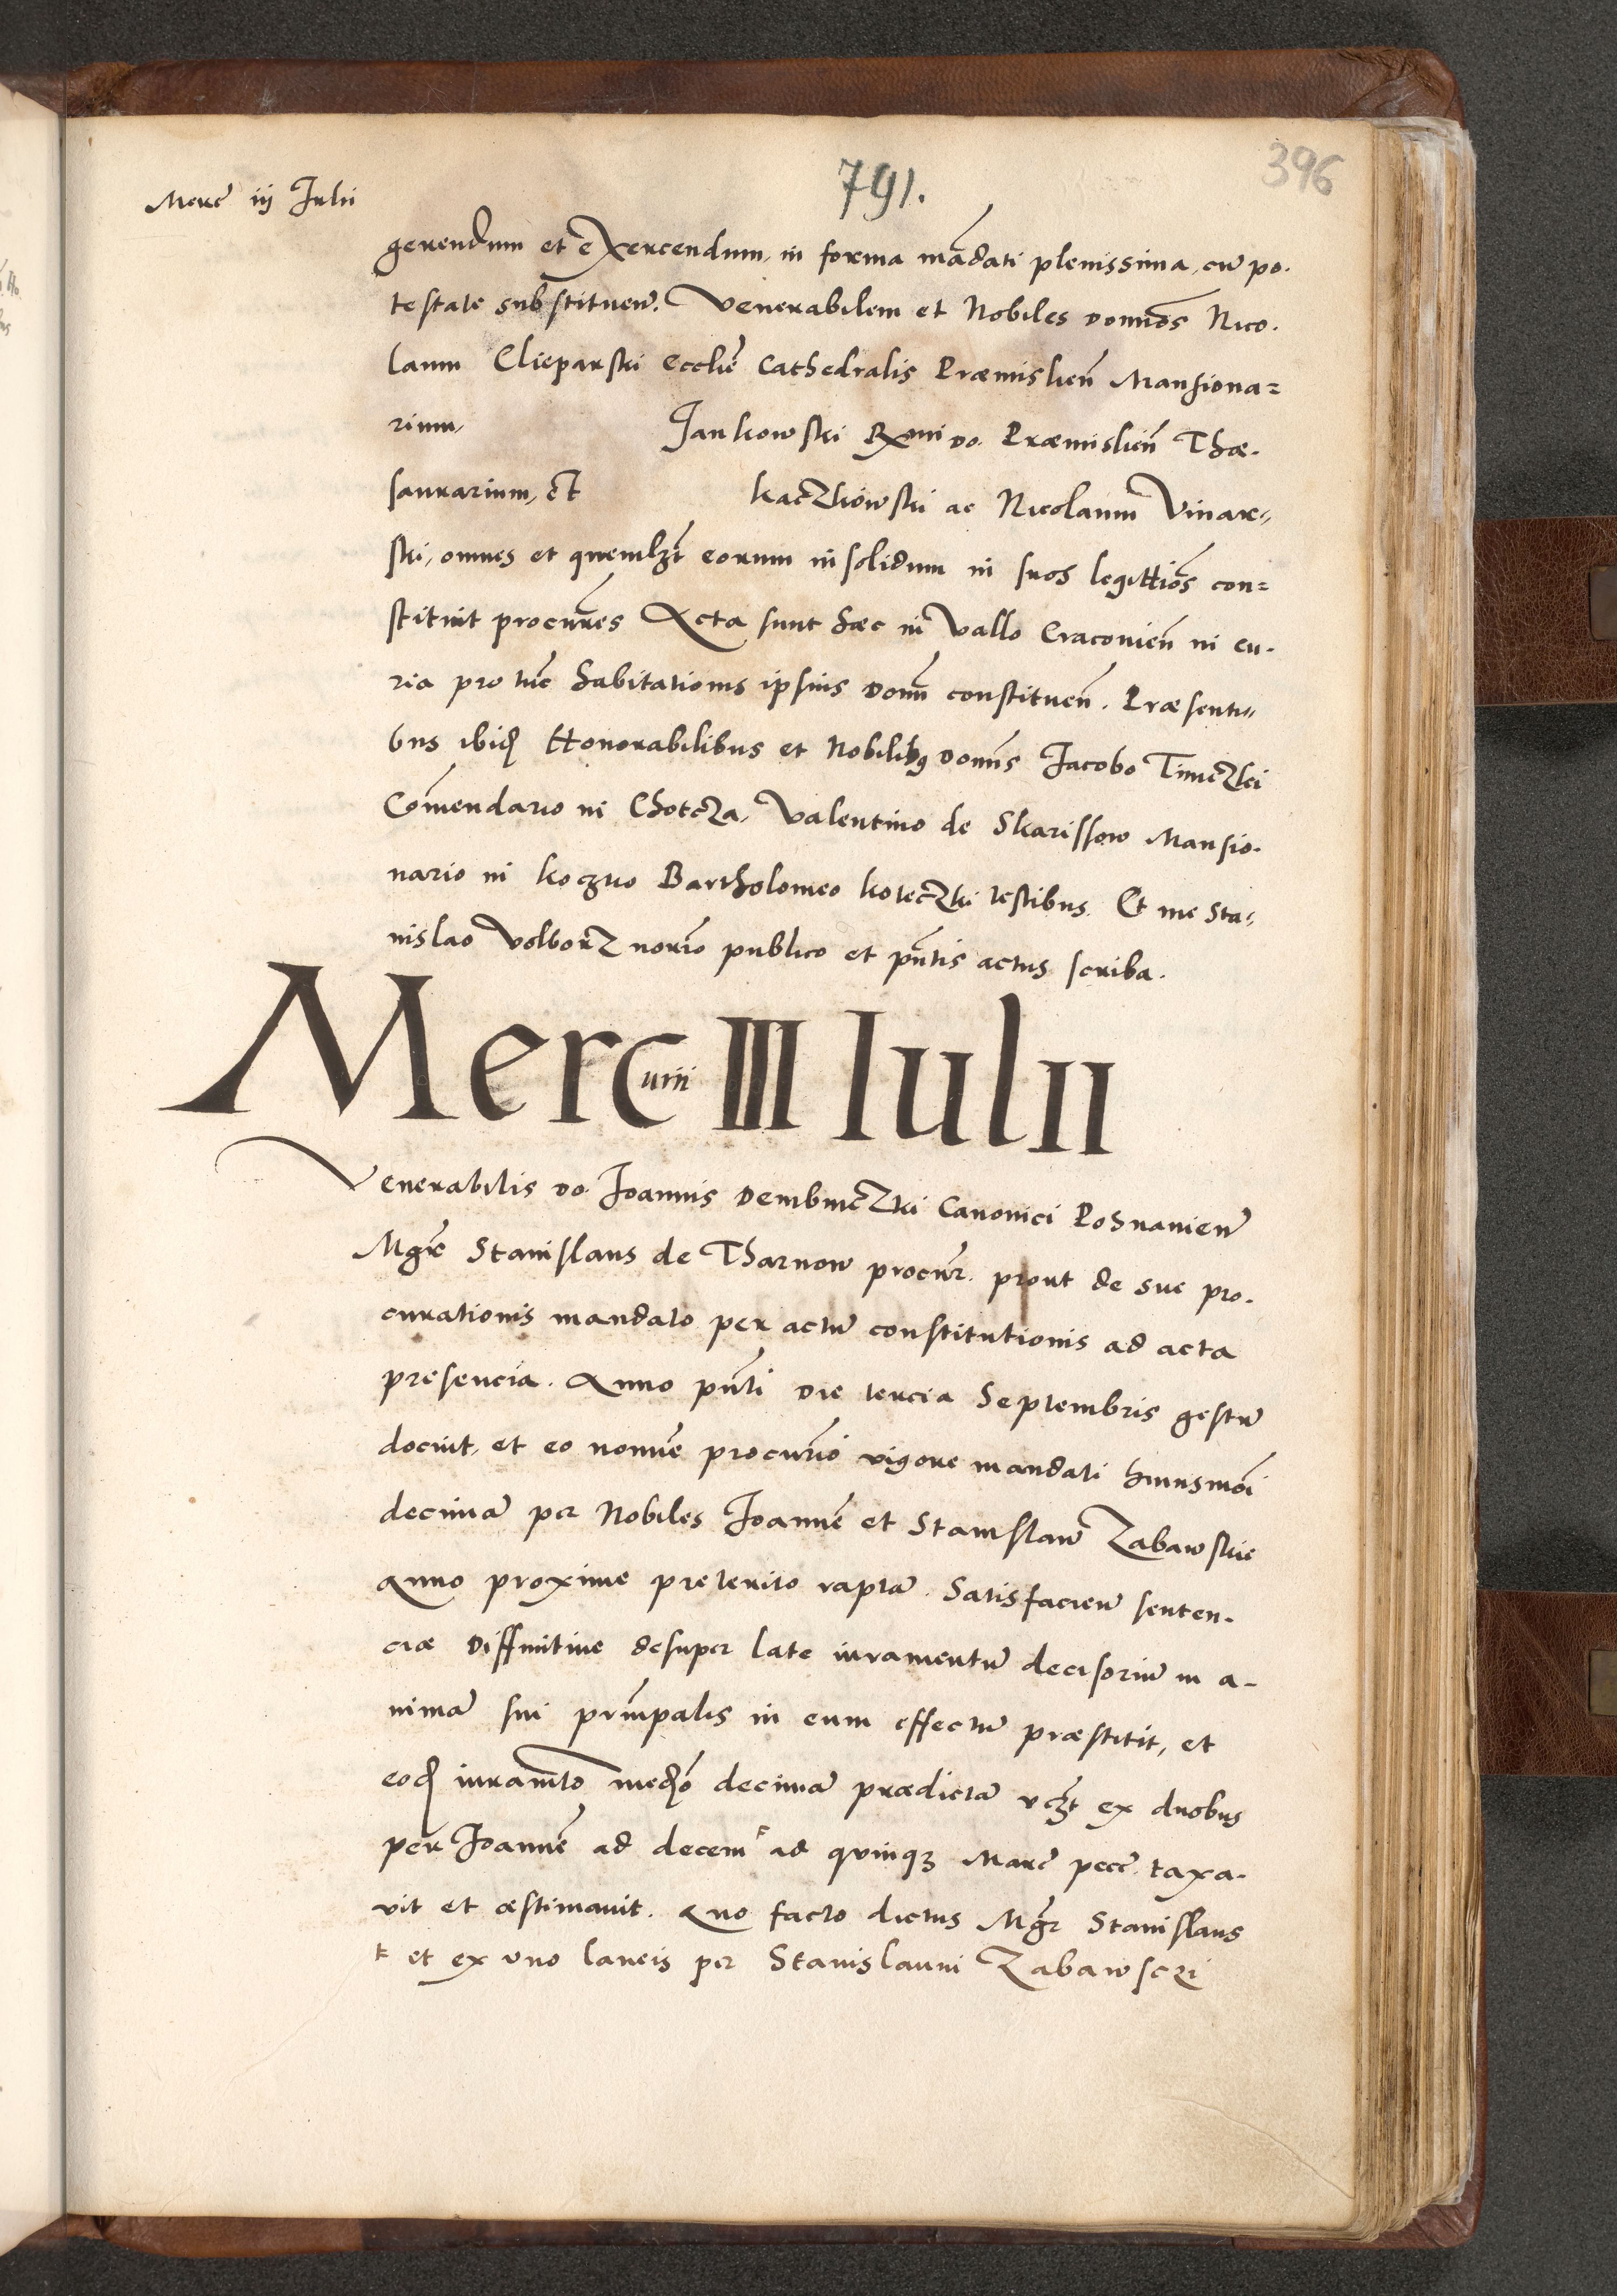 791.
396
Merc̃ iij Julii
gerendum et exercendum, in forma mãdati plenissima, cũ po.
testate substituen̄. Venerabilem et Nobiles Domños Nico.
laum Clieparski Ecclie͂ Cathedralis Præmislien̄ Mansiona=
rium, Jankowski Rx̄mi Do. Præmislien̄ Thæ.
saurarium, et̄ kaczkowski ac Nicolaum Vinar,,
ski, omnes et quemlȝt eorum insolidum in suos legittiõs con=
stituit procur̃es Acta sunt hæc in Vallo Cracovien̄ in cu.
ria pro tũc habitationis ipsius Domñ constituen̄. Præsenti,,
bus ibiđ Honorabilibus et Nobilibꝰ Domñs Jacobo Timiczki
Com̃endario in Chotcza, Valentino de Skarissow Mansio.
nario in koczųo Bartholomeo koteczki testibus. Et me Sta,
nislao Volborz nor̃io publico et pñtis actus scriba.
Mercurii III Iulii
Venerabilis Do. Joannis Dembiniczki Canonici Posnanien̄
Mgr̃ Stanislaus de Tharnow procur̃. prout de sue pro.
curationis mandato per actũ constitutionis ad acta
presencia. Anno pñti die tercia Septembris gestũ
docuit, et eo nomĩe procur̃io vigore mandati huiusmõi
decimã per Nobiles Joannẽ et Stanislaũ Zabawskie
Anno proxime preterito raptã. Satisfacien̄ senten.
ciæ diffinitiue desuper late iuramentũ decisoriũ in a-
nimã sui prĩncipalis in eum effectũ præstitit, et
eođ iuram̃to međo decimã prædictã vcȝt ex duobus
per Joannẽ ad decem ꜰ ad quinqȝ Marc̃ pecc̃. taxa.
vit et æstimauit. Quo facto dictus Mgr̃ Stanislaus
ꜰ et ex vno laneis per Stanislaum Zabawsczi